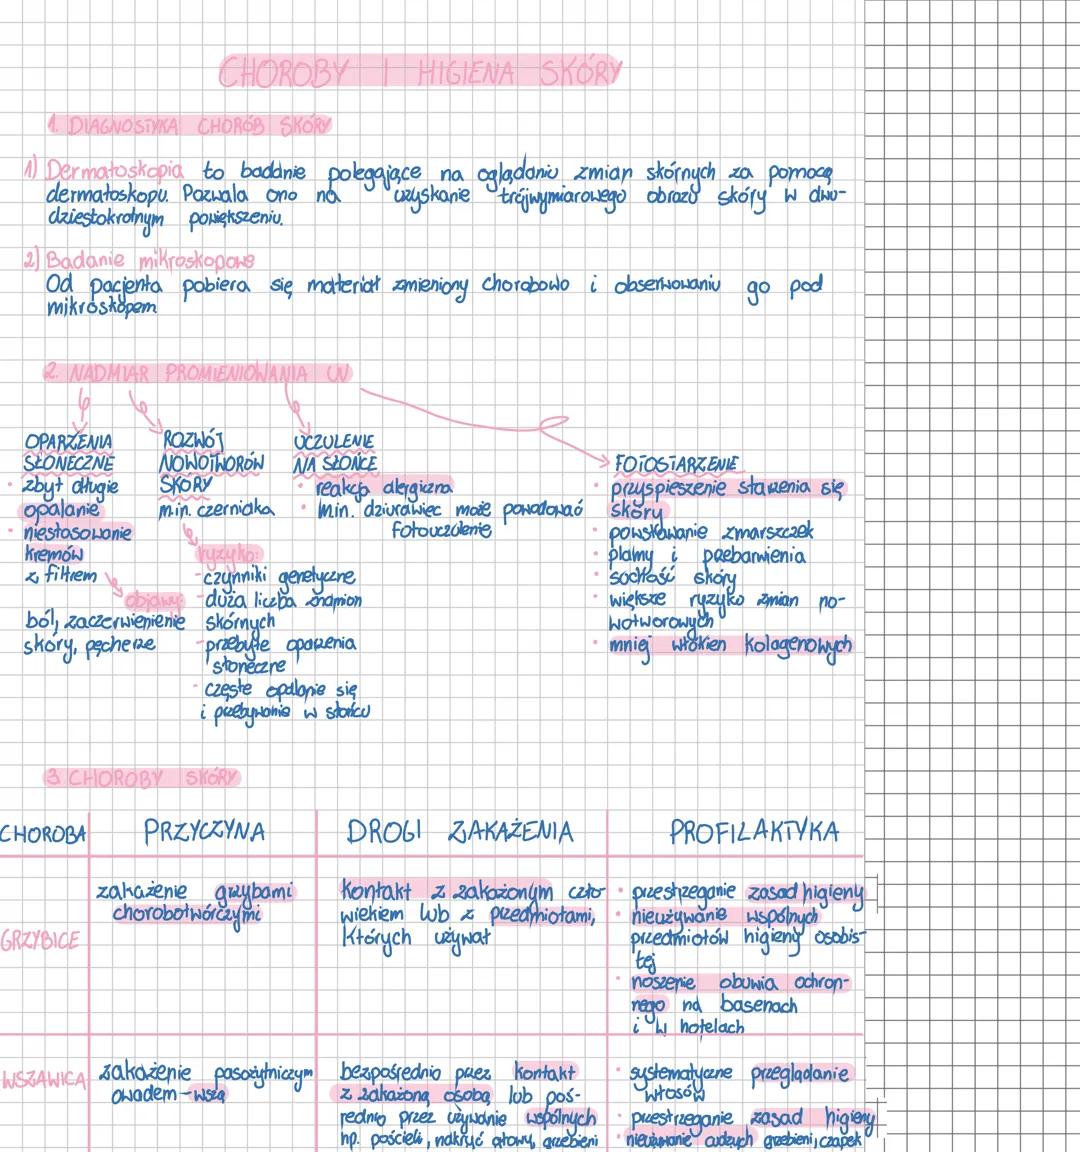 CHOROBY I HIGIENA SKÓRY
1. DIAGNOSTYKA CHORÓB SKÓRY
1) Dermatoskopia to badanie polegające na oglądaniu zmian skórnych za pomocą
dermatoskopu. Pozwala ono na uzyskanie trójwymiarowego obrazu skóry w dwu-
dziestokrotnym powiększeniu.
2) Badanie mikroskopowe
Od pacjenta pobiera się materiał zmieniony chorobowo i obserwowaniu go pod
mikroskopem
2. NADMIAR PROMIENIOWANIA UV
OPARZENIA
SŁONECZNE
• zbyt długie
opalanie
• niestosowanie
kremów
z filtrem
objawy:
ból, zaczerwienienie
skóry, pęcherze
ROZWÓJ
NOWOTWORÓW
SKÓRY
m.in. czerniaka
ryzyko:
- czynniki genetyczne
- duża liczba znamion
skórnych
- przebyte oparzenia
słoneczne
- częste opalanie się
i przebywanie w słońcu
UCZULENIE
NA SŁOŃCE
• reakcja alergiczna
• m.in. dziurawiec może powodować
fotouczulenie
FOTOSTARZENIE
• przyspieszenie starzenia się
skóry
• powstawanie zmarszczek
• plamy i przebarwienia
• suchość skóry
• większe ryzyko zmian no-
wotworowych
• mniej włókien kolagenowych
3. CHOROBY SKÓRY
CHOROBA PRZYCZYNA DROGI ZAKAŻENIA PROFILAKTYKA
GRZYBICE
zakażenie grzybami
chorobotwórczymi
kontakt z zakażonym czło-
wiekiem lub z przedmiotami,
których używał
• przestrzeganie zasad higieny
• nieużywanie wspólnych
przedmiotów higieny osobis-
tej
• noszenie obuwia ochron-
nego na basenach
i w hotelach
WSZAWICA
zakażenie pasożytniczym
owadem - wszą
bezpośrednio przez kontakt
z zakażoną osobą lub poś-
rednio przez używanie wspólnych
np. pościeli, nakryć głowy, grzebieni
• systematyczne przeglądanie
włosów
• przestrzeganie zasad higieny
• nieużywanie cudzych grzebieni, czapek